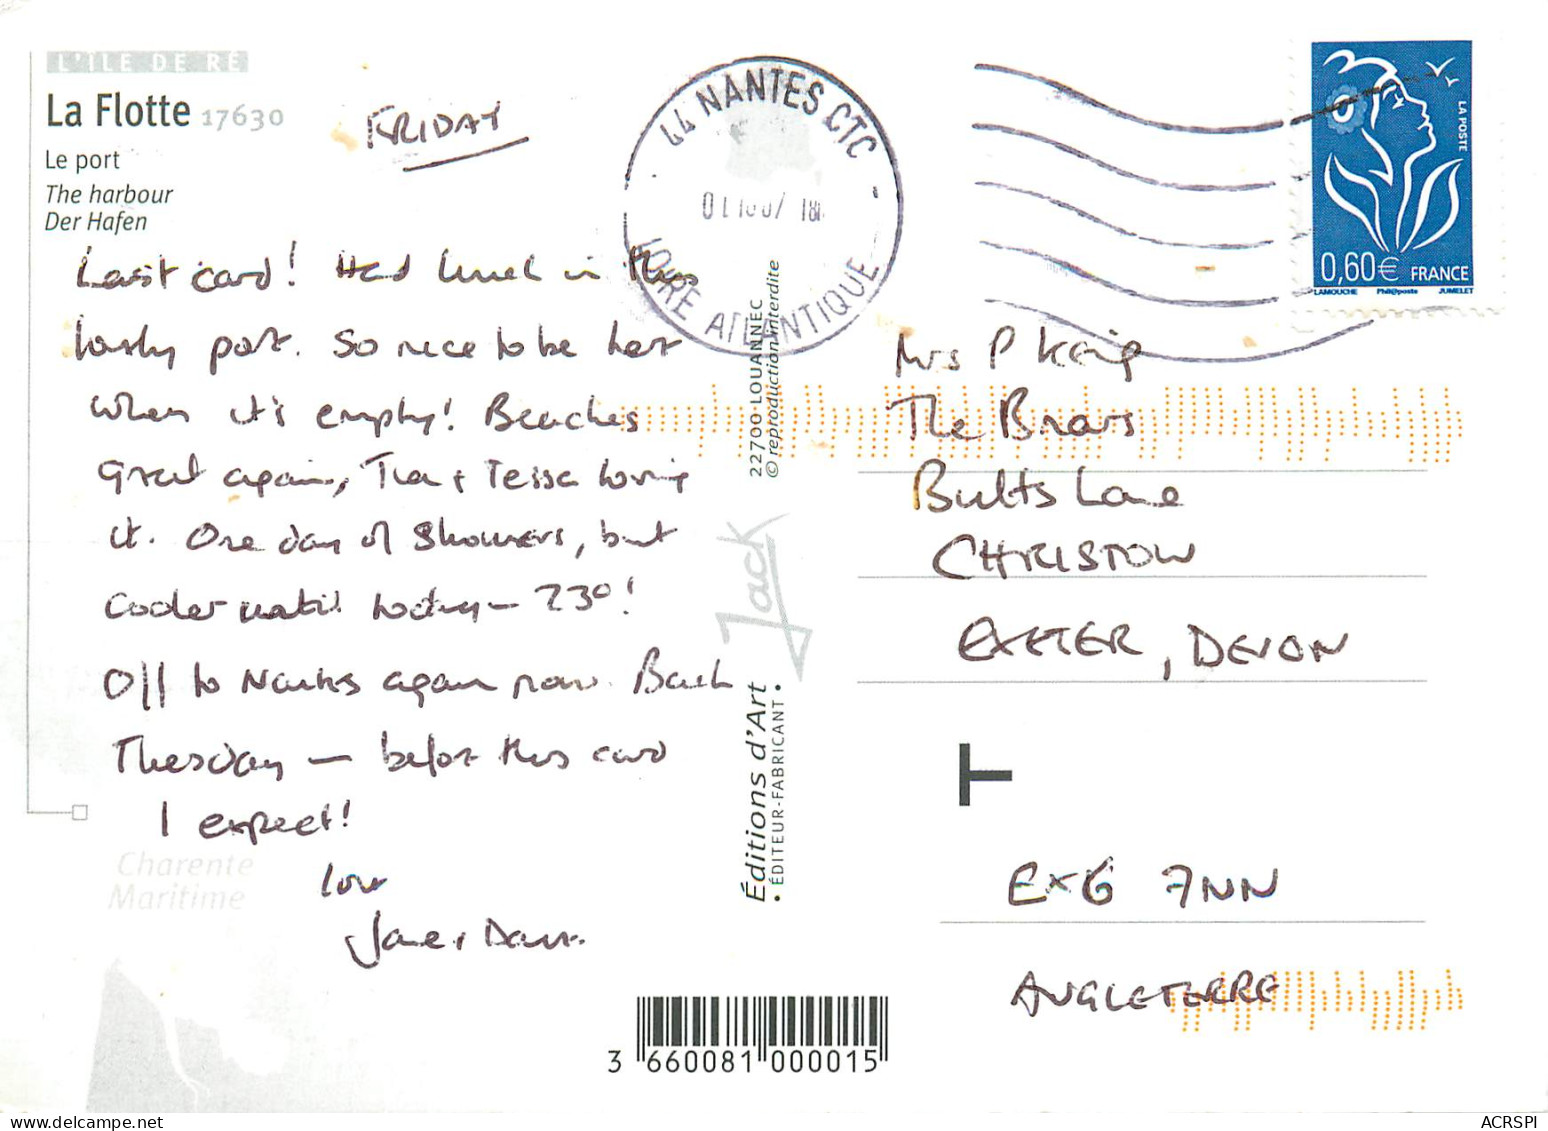 L'ÎLE DE RÉ
La Flotte 17630
Le port
The harbour
Der Hafen
FRIDAY
Last card! Had lunch in this
lovely port. So nice to be here
when it's empty! Beaches
great again, Tia + Tessa loving
it. One day of showers, but
cooler until today – 23°!
Off to Nantes again now. Back
Tuesday – before this card
I expect!
love
Jane + Dave.
Charente
Maritime
44 NANTES CTC
LOIRE ATLANTIQUE
22700 LOUANNEC
© reproduction interdite
Jack
Éditions d'Art
• ÉDITEUR-FABRICANT •
3 660081 000015
LA POSTE
0,60€ FRANCE
LAMOUCHE Phil@poste JUMELET
Mrs P Keig
The Briars
Butts Lane
CHRISTOW
EXETER, DEVON
T
EX6 7NN
ANGLETERRE
ACRSPI